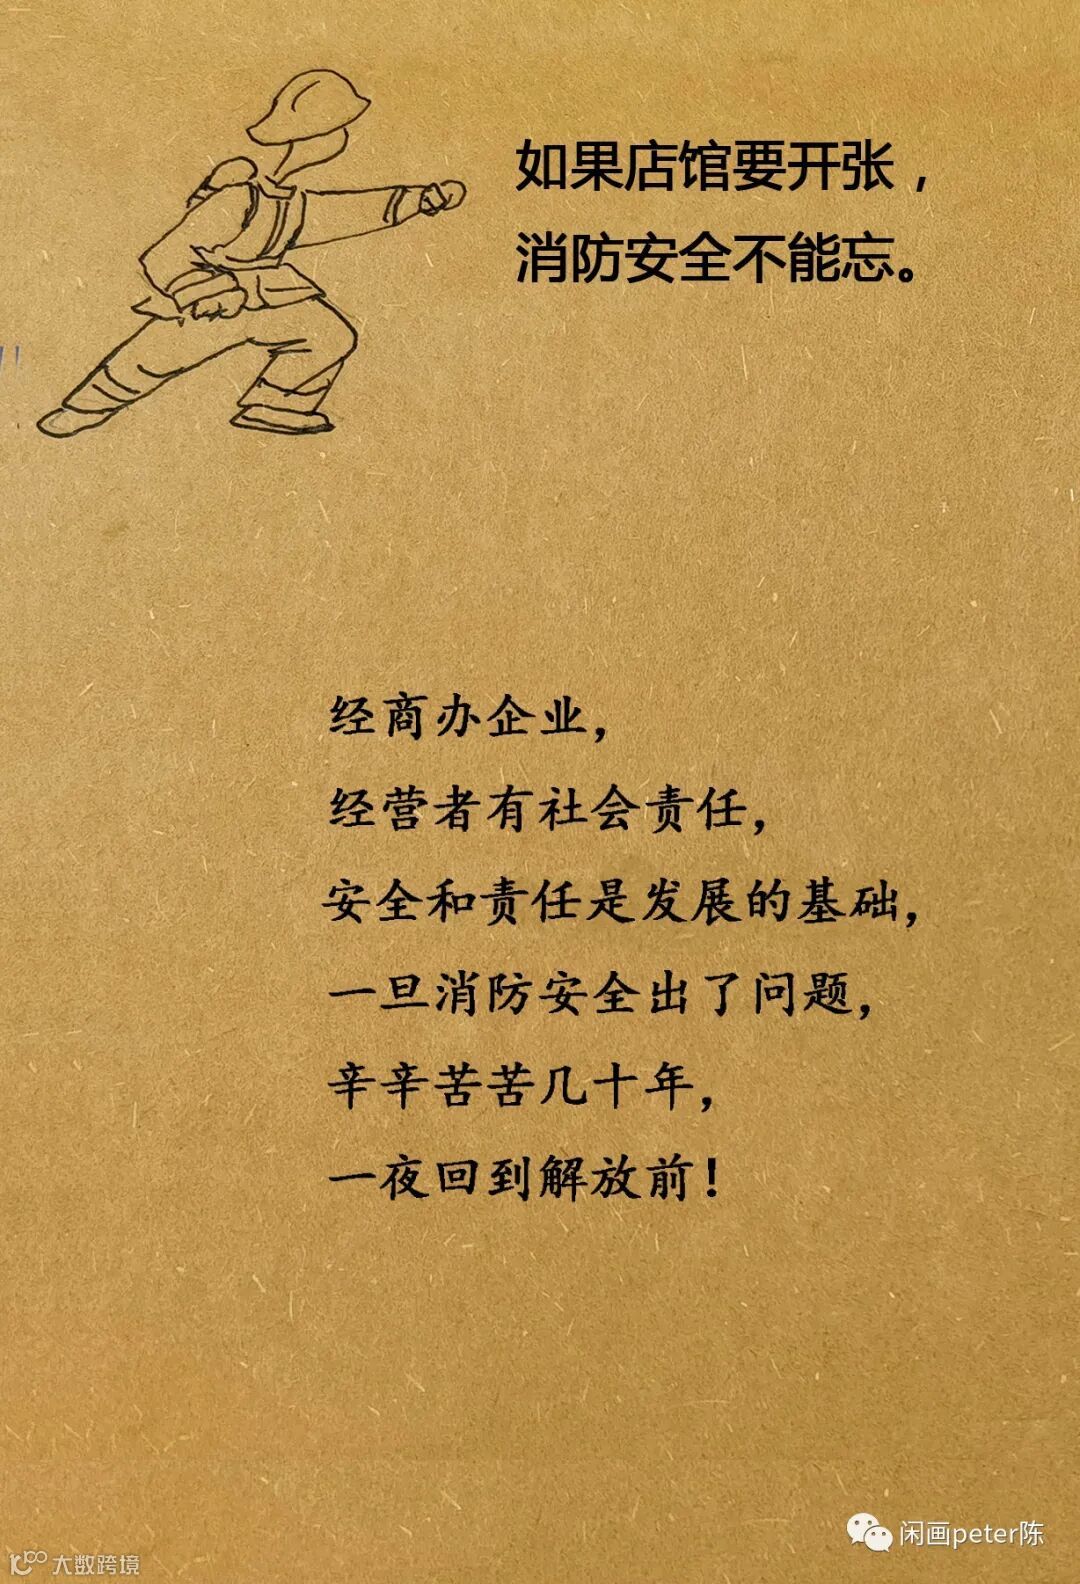 如果店馆要开张，
消防安全不能忘。
经商办企业，
经营者有社会责任，
安全和责任是发展的基础，
一旦消防安全出了问题，
辛辛苦苦几十年，
一夜回到解放前！
闲画peter陈
大数跨境